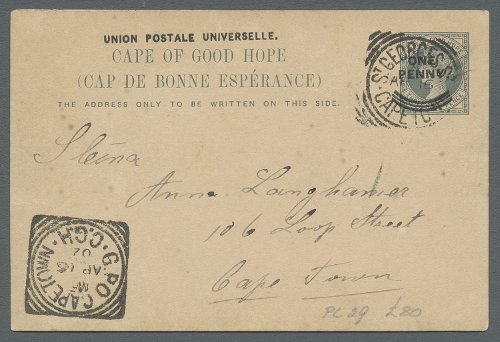 UNION POSTALE UNIVERSELLE.
CAPE OF GOOD HOPE
(CAP DE BONNE ESPÉRANCE)
THE ADDRESS ONLY TO BE WRITTEN ON THIS SIDE.
ONE
PENNY
ST GEORGE'S ST
AP 16
CAPETOWN
Anna Langhamer
106 Loop Street
Cape Town
G.P.O CAPETOWN. C.G.H.
M
AP 16
02
PC 29 £80